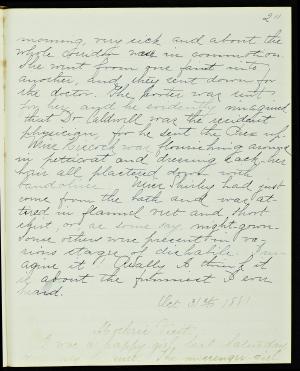 2"
morning, very sick and about the
whole corridor was in commotion
She went from one faint into
another, and they sent down for
the doctor. The porter was sent
for her and he evidently imagined
that Dr Caldwell was the resident
physician, for he sent the Prex up.
was flourishing around
in petticoat and dressing sack - her
hair all plastered down with
bandoline. Miss Shirley had just
come from the bath and was at-
tired in flannel vest and short
skirt, or as some say, night-gown.
Some others were present in va-
rious stages of dishabille. Im-
agine it! Really I think it
is about the funniest I ever
heard.
Oct 31st, 1881
I was a happy girl last Saturday
The messenger girl